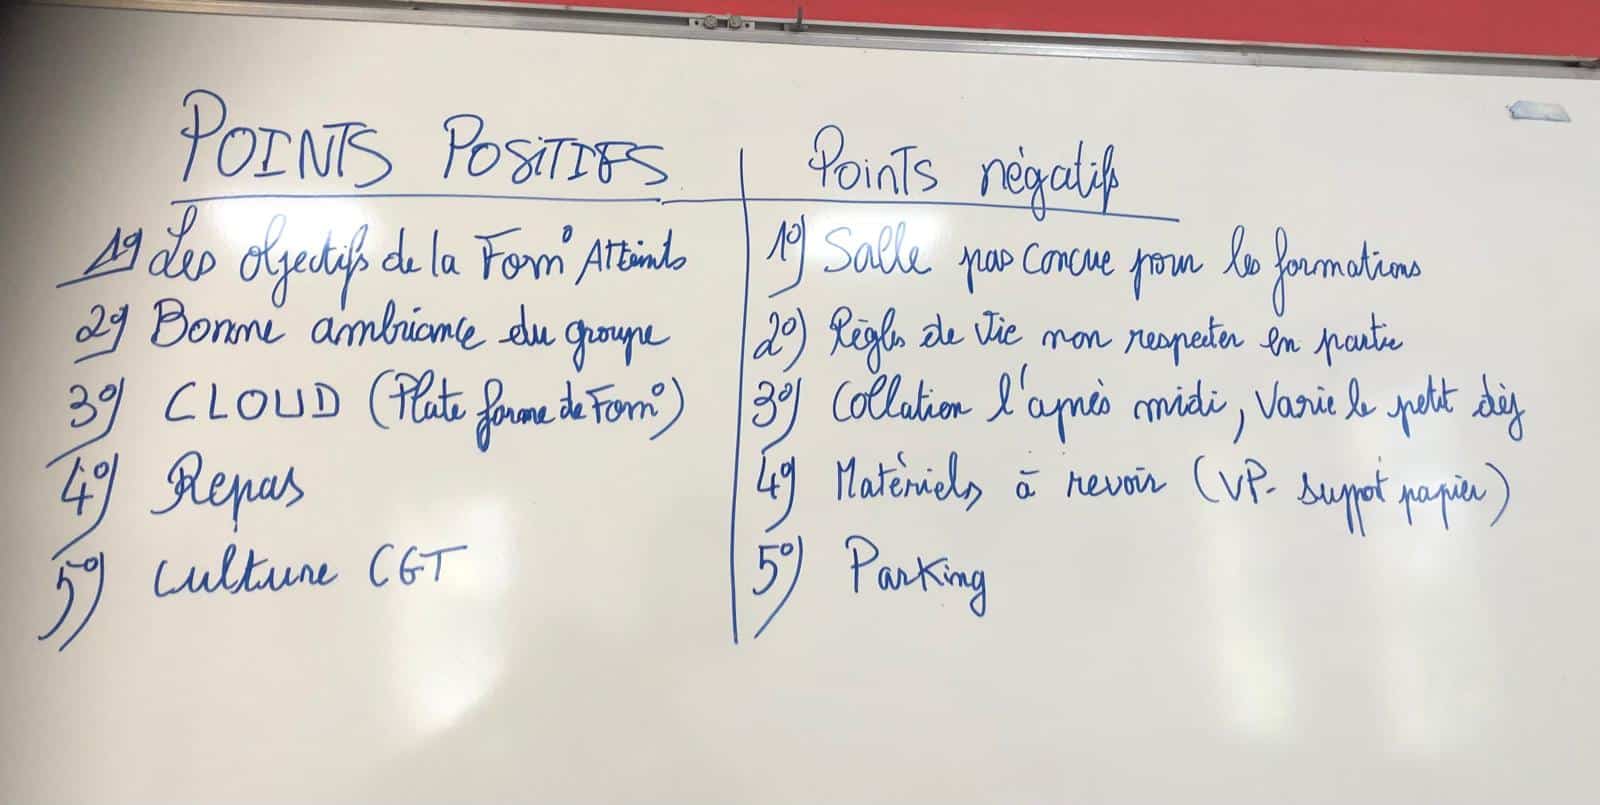 POINTS POSITIFS
1°) Les objectifs de la Form° Atteints
2°) Bonne ambiance du groupe
3°) CLOUD (Plate forme de Form°)
4°) Repas
5°) Culture CGT
Points négatifs
1°) Salle pas concue pour les formations
2°) Règles de Vie non respecter en partie
3°) Collation l'après midi, Varie le petit déj
4°) Matériels à revoir (VP- suppot papier)
5°) Parking